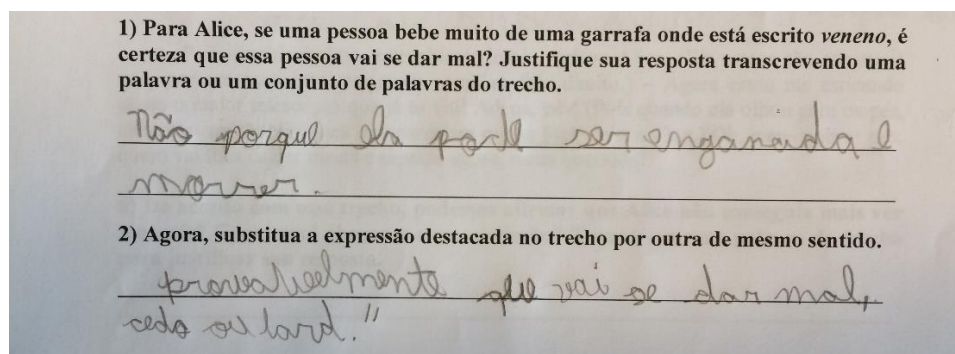 1) Para Alice, se uma pessoa bebe muito de uma garrafa onde está escrito veneno, é
certeza que essa pessoa vai se dar mal? Justifique sua resposta transcrevendo uma
palavra ou um conjunto de palavras do trecho.
Não porque ela pode ser enganada e
morrer.
2) Agora, substitua a expressão destacada no trecho por outra de mesmo sentido.
provavelmente que vai se dar mal,
cedo ou tard."